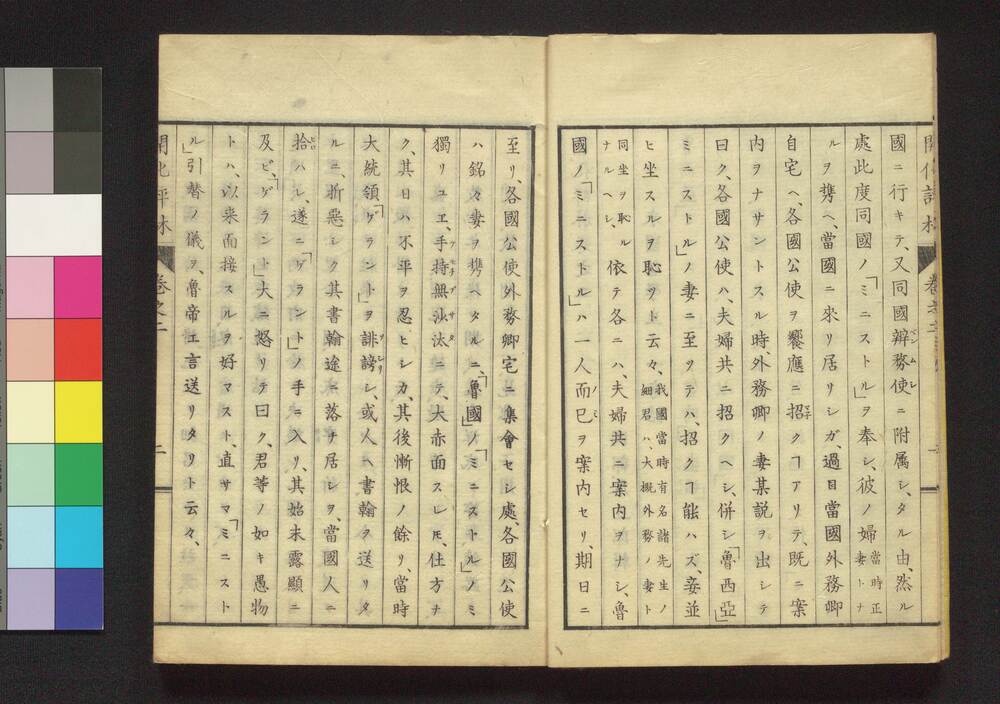 國ニ行キテ、又同國辨務使ニ附属シ、タル由、然ル
處此度同國ノ「ミニストル」ヲ奉シ、彼ノ婦當時正妻トナ
ルヲ携ヘ、當國ニ來リ居リシガ、過日當國外務卿
自宅ヘ、各國公使ヲ饗應ニ招クヿアリテ、既ニ案
内ヲナサントスル時、外務卿ノ妻某説ヲ出シテ
曰ク、各國公使ハ、夫婦共ニ招クヘシ、併シ「魯西亞」
ミニストル」ノ妻ニ至ツテハ、招クヿ能ハズ、妾並
ヒ坐スルヲ恥ツト云々、我國當時有名諸先生ノ細君ハ、大概外務ノ妻ト
同坐ヲ恥ルナルヘシ、依テ各ニハ、夫婦共ニ案内ヲナシ、魯
國ノ「ミニストル」ハ一人而已ヲ案内セリ、期日ニ
至リ、各國公使外務卿宅ニ集會セシ處、各國公使
ハ銘々妻ヲ携ヘタルニ、「魯國」ノ「ミニストル」ノミ
獨リユヱ、手持無沙汰ニテ、大赤面スレ𪜈、仕方ナ
ク、其日ハ不平ヲ忍ヒシカ、其後慚恨ノ餘リ、當時
大統領「ゲラント」ヲ誹謗シ、或人ヘ書翰ヲ送リタ
ルニ、折惡シク其書翰途ニ落チ居シヲ、當國人ニ
拾ハレ、遂ニ「ゲラント」ノ手ニ入リ、其始末露顯ニ
及ビ、「ゲラント」大ニ怒リテ曰ク、君等ノ如キ愚物
トハ、以来面接スルヲ好マスト、直サママ「ミニスト
ル」引替ノ儀ヲ、魯帝エ言送リタリト云々、
開化評林 卷之二 二